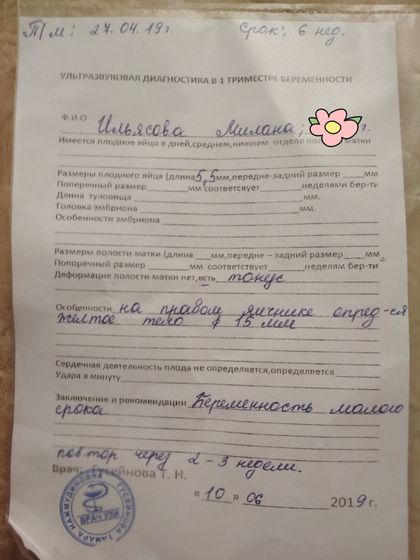 П/м: 27.04.19г. Срок: 6 нед.
УЛЬТРАЗВУКОВАЯ ДИАГНОСТИКА В 1 ТРИМЕСТРЕ БЕРЕМЕННОСТИ
Ф.И.О Ильясова Милана; г.
Имеется плодное яйцо в дней,среднем,нижнем отделе матки
Размеры плодного яйца (длина 5,5 мм,передне-задний размер ____мм
Поперечный размер ________мм соответствует ________неделями бер-ти
Длина туловища ________ мм.
Головка эмбриона ________мм.
Особенности эмбриона ________
Размеры полости матки (длина ____мм,передне – задний размер ____мм
Попоречный размер ________мм соответствует ________неделям бер-ти
Деформация полости матки нет,есть тонус
Особенности на правом яичнике опред-ся
желтое тело ф 15 мм
Сердечная деятельность плода не определяется,определяется
Удара в минуту
Заключение и рекомендации Беременность малого
срока
повтор через 2-3 недели.
Врач: Гусейнова Т. Н.
«10» 06 2019г.
ГУСЕЙНОВА ТАМАРА НАЖМУДИНОВНА
ВРАЧ УЗИ